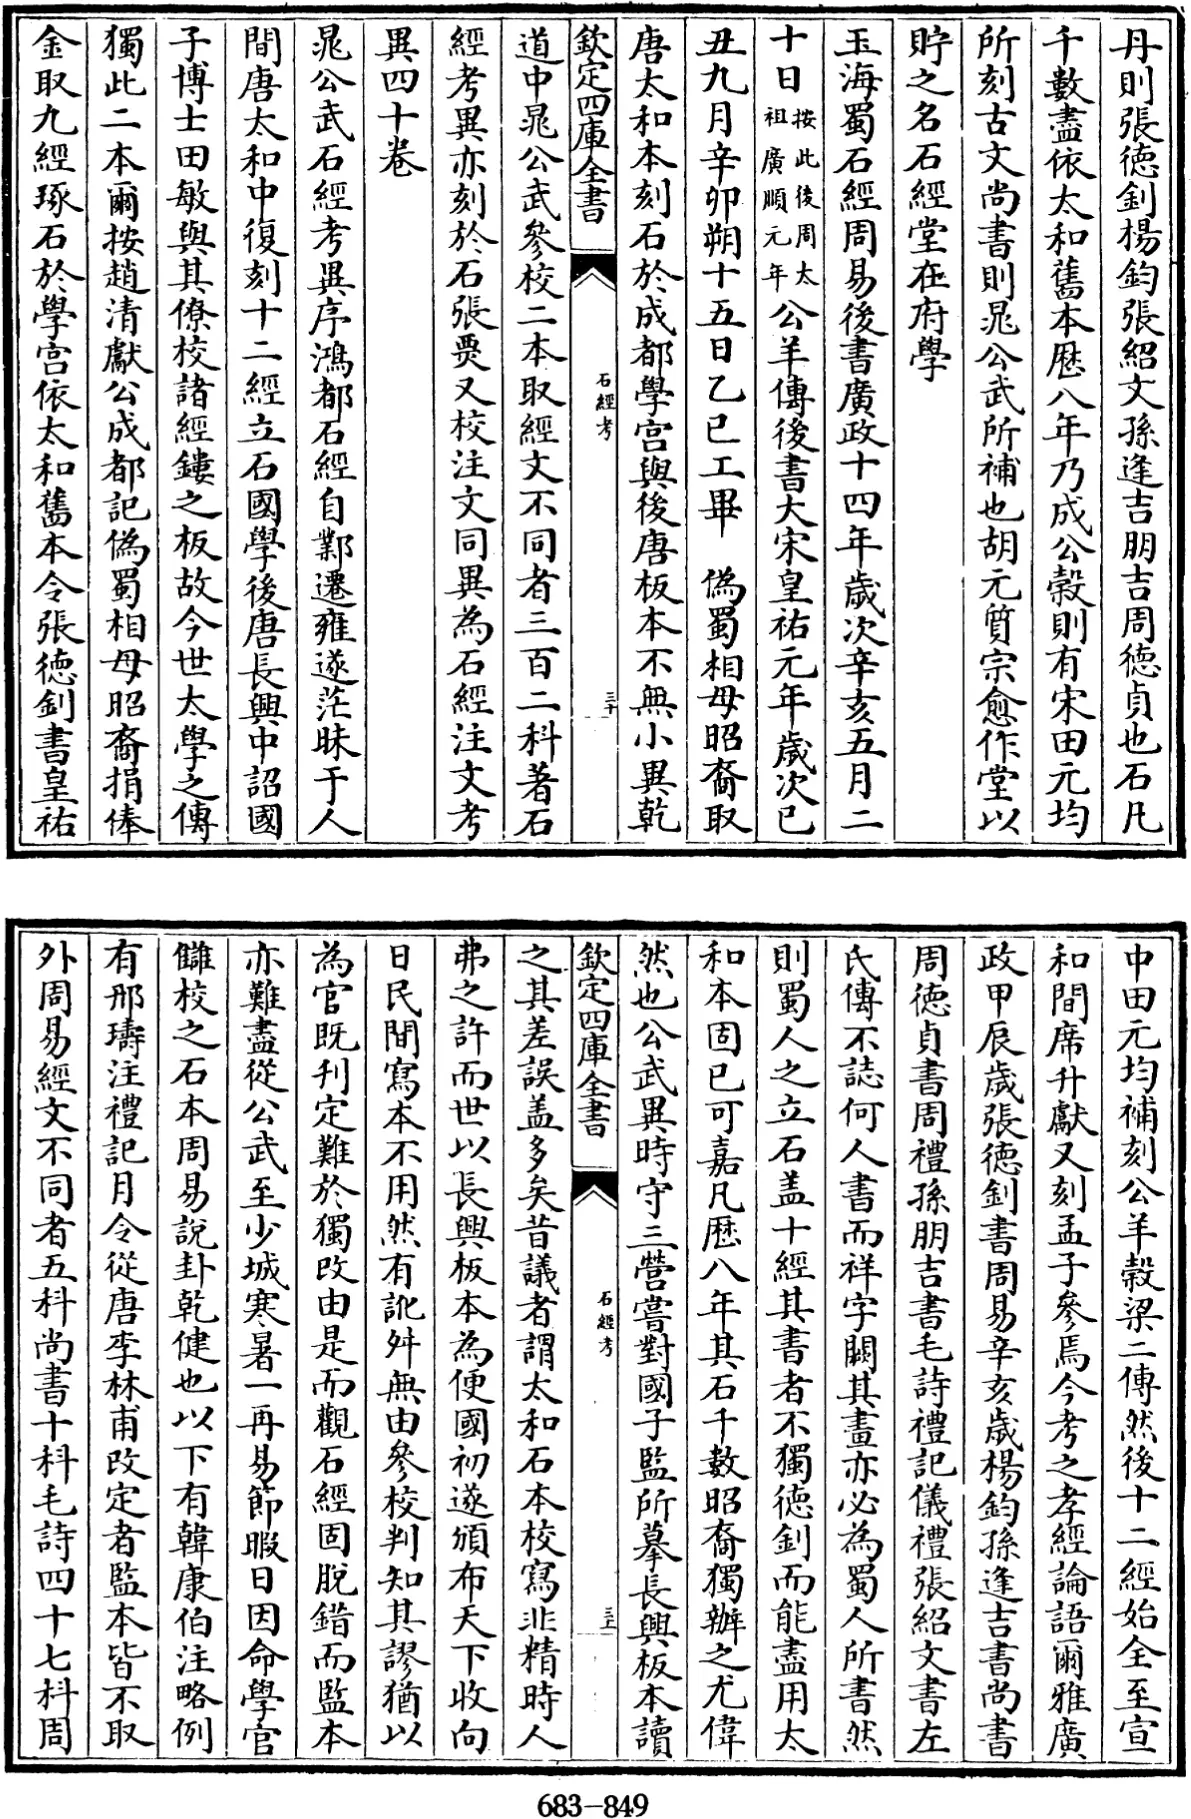 丹則張徳釗楊鈞張紹文孫逢吉朋吉周徳貞也石凡
千數盡依太和舊本厯八年乃成公榖則有宋田元均
所刻古文尚書則晁公武所補也胡元質宗愈作堂以
貯之名石經堂在府學
玉海蜀石經周易後書廣政十四年歲次辛亥五月二
十日按此後周太祖廣順元年公羊傳後書大宋皇祐元年歲次已
丑九月辛卯朔十五日乙巳工畢　偽蜀相母昭裔取
唐太和本刻石於成都學宫與後唐板本不無小異乾
欽定四庫全書
石經考
三十
道中晁公武參校二本取經文不同者三百二科著石
經考異亦刻於石張㚓又校注文同異為石經注文考
異四十卷
晁公武石經考異序鴻都石經自鄴遷雍遂茫昧于人
間唐太和中復刻十二經立石國學後唐長興中詔國
子博士田敏與其僚校諸經鏤之板故今世太學之傳
獨此二本爾按趙清獻公成都記偽蜀相母昭裔捐俸
金取九經琢石於學宫依太和舊本令張徳釗書皇祐
中田元均補刻公羊榖梁二傳然後十二經始全至宣
和間席升獻又刻孟子參焉今考之孝經論語爾雅廣
政甲辰歲張徳釗書周易辛亥歲楊鈞孫逢吉書尚書
周徳貞書周禮孫朋吉書毛詩禮記儀禮張紹文書左
氏傳不誌何人書而祥字闕其畫亦必為蜀人所書然
則蜀人之立石盖十經其書者不獨徳釗而能盡用太
和本固已可嘉凡厯八年其石千數昭裔獨辦之尤偉
然也公武異時守三營嘗對國子監所摹長興板本讀
欽定四庫全書
石經考
三十一
之其差誤盖多矣昔議者謂太和石本校寫非精時人
弗之許而世以長興板本為便國初遂頒布天下收向
日民間寫本不用然有訛舛無由參校判知其謬猶以
為官既刋定難於獨改由是而觀石經固脱錯而監本
亦難盡從公武至少城寒暑一再易節暇日因命學官
讎校之石本周易説卦乾健也以下有韓康伯注略例
有邢璹注禮記月令從唐李林甫改定者監本皆不取
外周易經文不同者五科尚書十科毛詩四十七科周
683-849